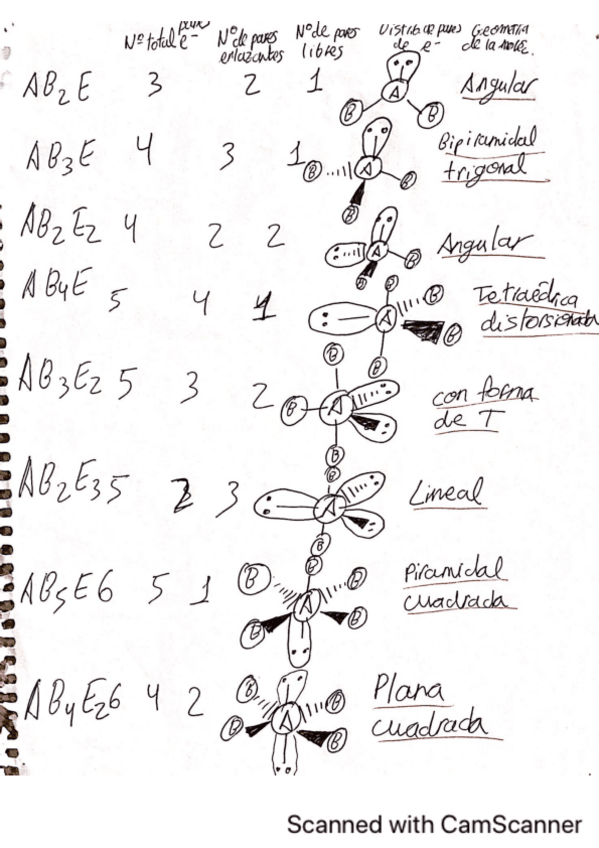 Nº total pares e⁻ Nº de pares enlazantes Nº de pares libres Distrib. de pares de e⁻ Geometría de la moléc.
AB₂E 3 2 1 A B B Angular
AB₃E 4 3 1 B A B B Bipiramidal trigonal
AB₂E₂ 4 2 2 A B B Angular
AB₄E 5 4 1 B A B B B Tetraédica distorsionada
AB₃E₂ 5 3 2 B B A B con forma de T
AB₂E₃ 5 2 3 B A B Lineal
AB₅E 6 5 1 B B B A B B Piramidal cuadrada
AB₄E₂ 6 4 2 B B A B B Plana cuadrada
Scanned with CamScanner